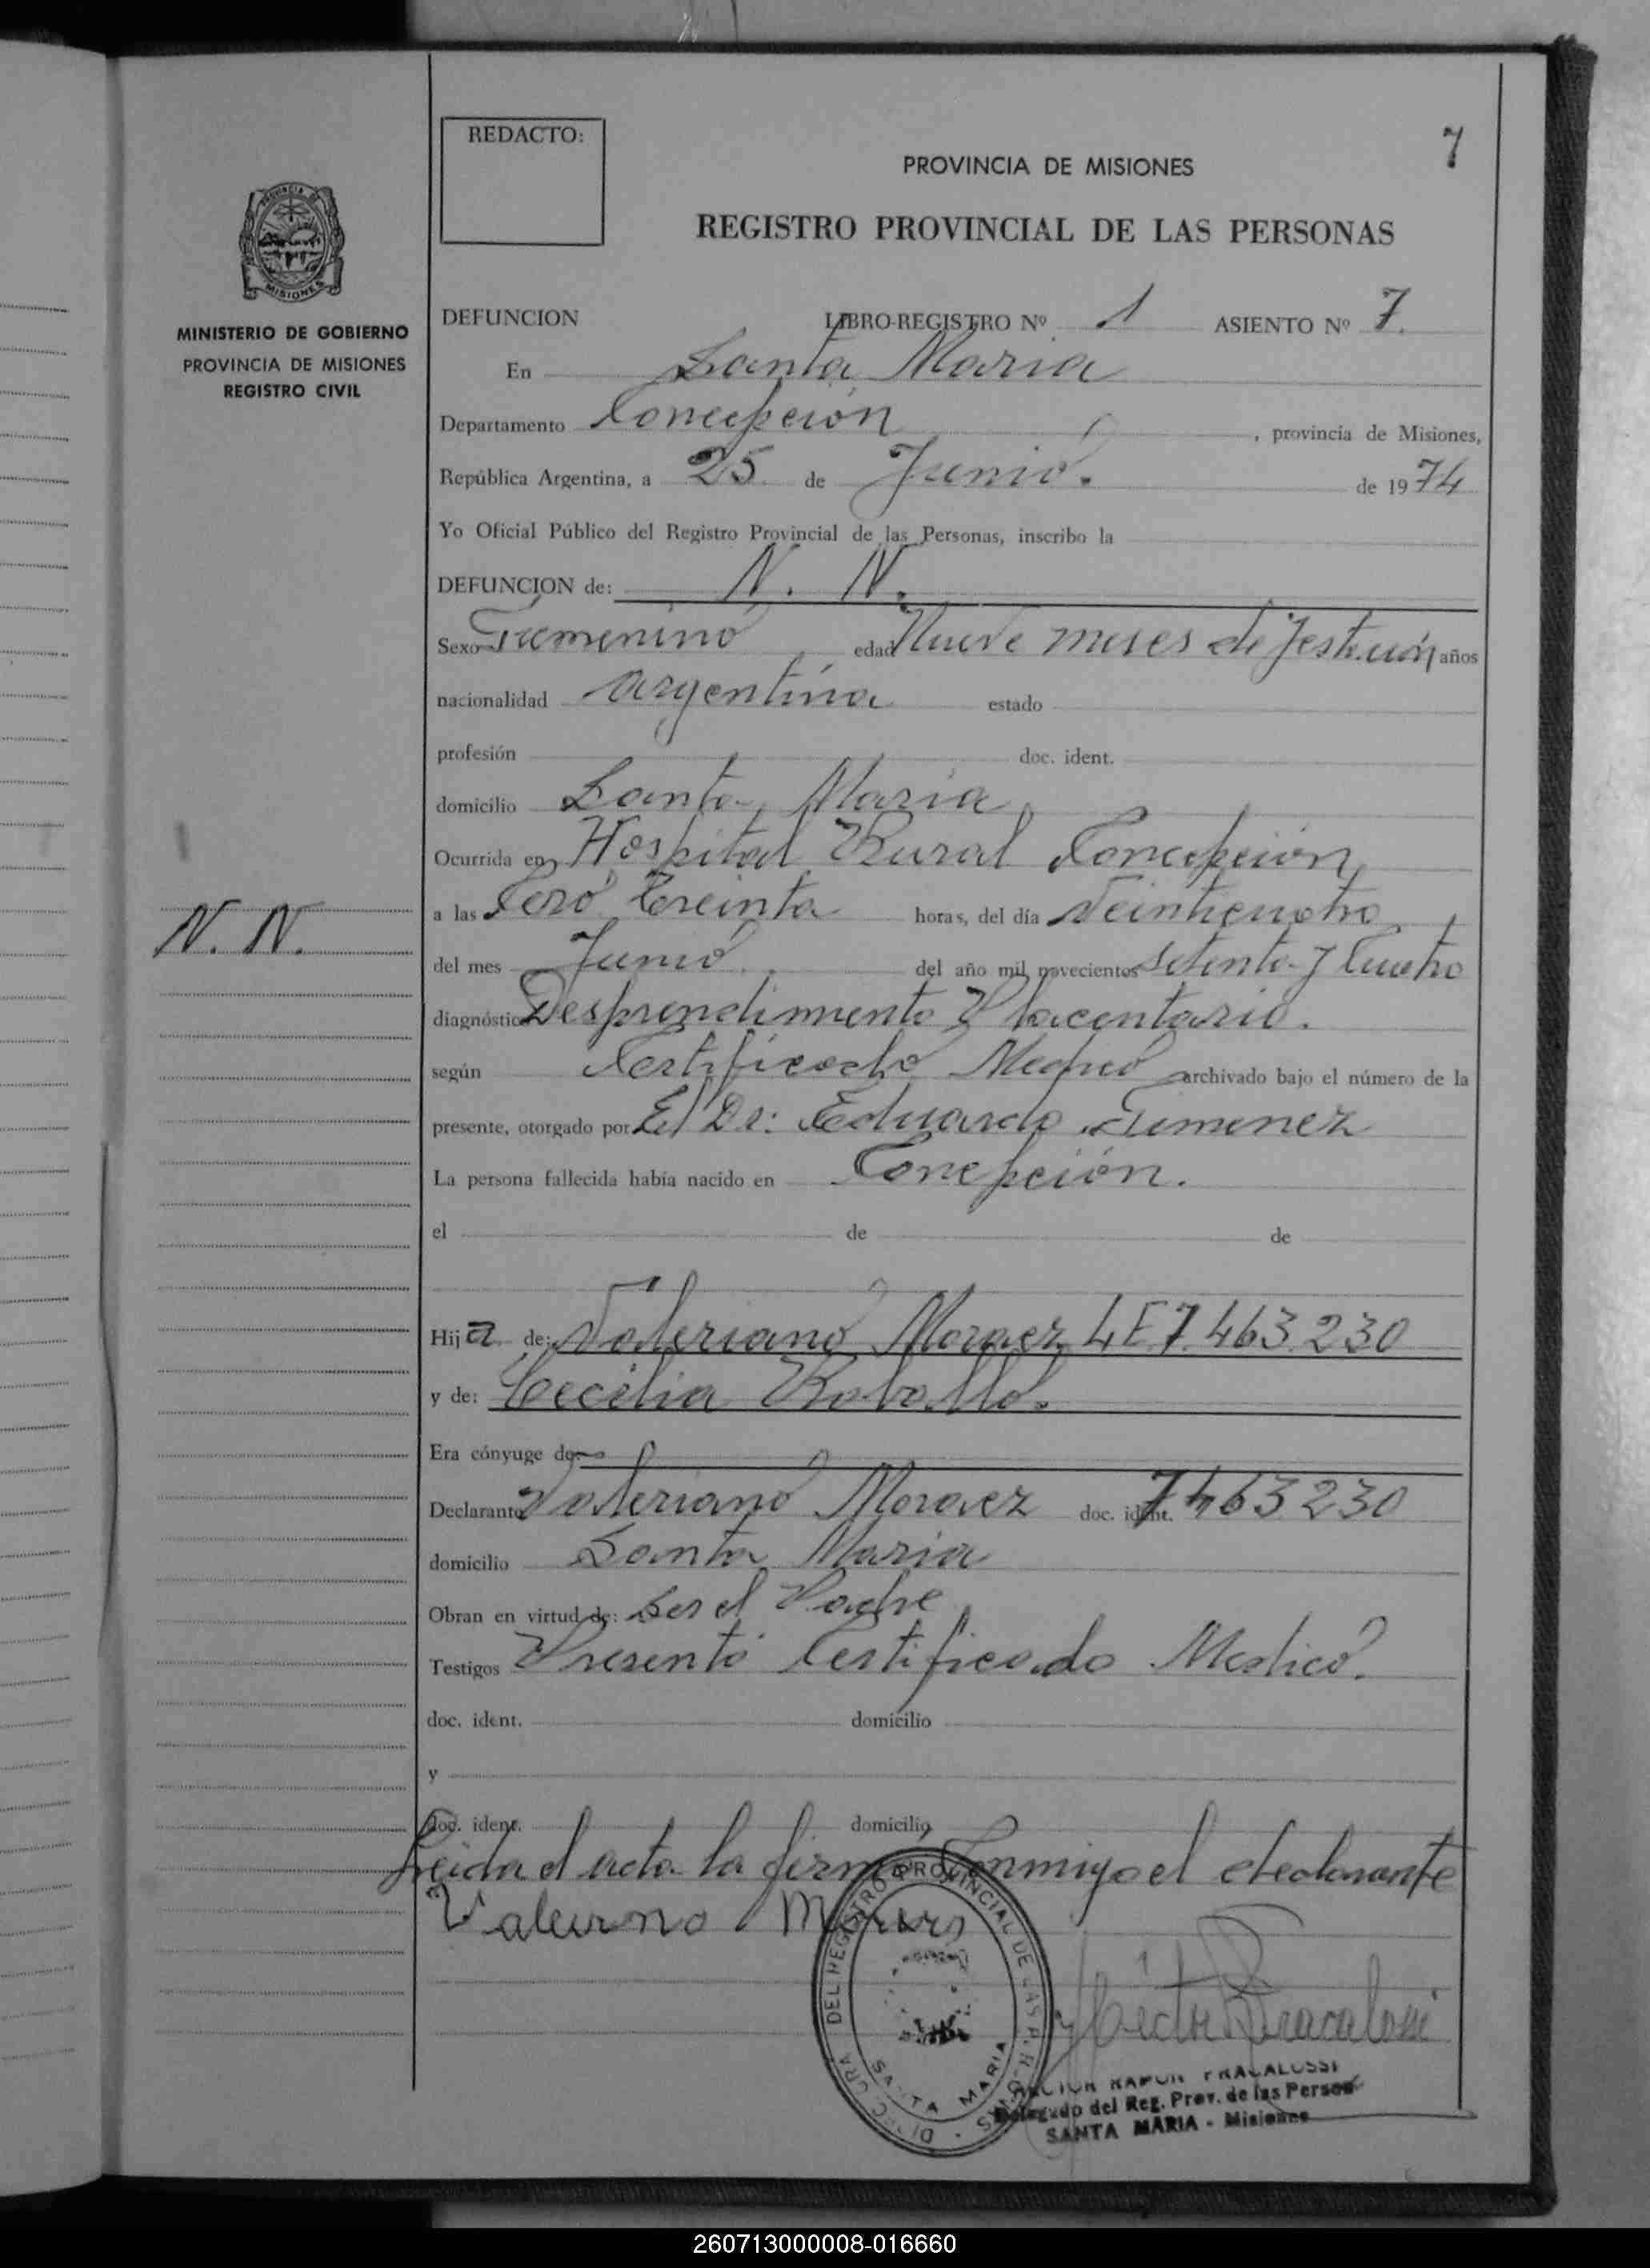 REDACTO:
7
PROVINCIA DE MISIONES
REGISTRO PROVINCIAL DE LAS PERSONAS
PROVINCIA DE
MISIONES
MINISTERIO DE GOBIERNO
PROVINCIA DE MISIONES
REGISTRO CIVIL
DEFUNCION LIBRO-REGISTRO Nº 1 ASIENTO Nº 7.
En Santa Maria
Departamento Concepción, provincia de Misiones,
República Argentina, a 25 de Junio. de 1974
Yo Oficial Público del Registro Provincial de las Personas, inscribo la
DEFUNCION de: N. N.
Sexo Femenino edad Nueve meses de jestación años
nacionalidad argentina estado
profesión doc. ident.
domicilio Santa Maria
Ocurrida en Hospital Rural Concepción
N. N.
a las Cero Treinta horas, del día Veinticuatro
del mes Junio del año mil novecientos setenta y Cuatro
diagnóstico Desprendimiento Placentario.
según Certificado Medico archivado bajo el número de la
presente, otorgado por El Dr: Eduardo Jimenez
La persona fallecida había nacido en Concepción.
el de de
Hija de: Valeriano Moraez LE 7.463.230
y de: Cecilia
Era cónyuge de:
Declarante Valeriano Moraez doc. ident. 7463230
domicilio Santa Maria
Obran en virtud de: Ser el Padre
Testigos Presentó Certificado Medico.
doc. ident. domicilio
y
doc. ident. domicilio
Leida el acta la firma Conmigo el declarante
DIRECC. GRAL. DEL REGISTRO PROVINCIAL DE LAS PERSONAS
SANTA MARIA
HECTOR RAMON FRACALOSSI
Delegado del Reg. Prov. de las Person
SANTA MARIA - Misiones
260713000008-016660